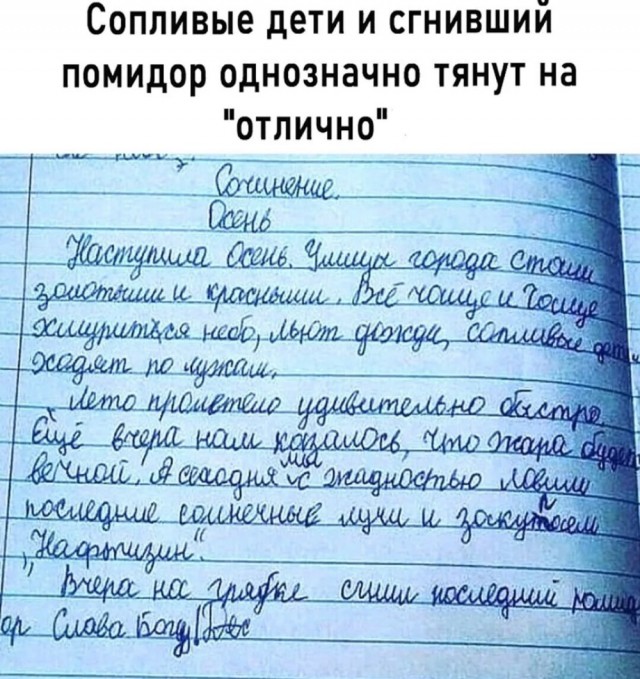 Сопливые дети и сгнивший
помидор однозначно тянут на
"отлично"
Сочинение.
Осень
Наступила Осень. Улицы города стали
золотыми и красными. Всё чаще и чаще
хмурится небо, льют дожди, сопливые дети
ходят по лужам.
Лето пролетело удивительно быстро.
Ещё вчера нам казалось, что жара будет
вечной. А сегодня мы с жадностью ловим
последние солнечные лучи и
"Нафтизин".
Вчера на грядке сгнил последний помид
ор Слава Богу!